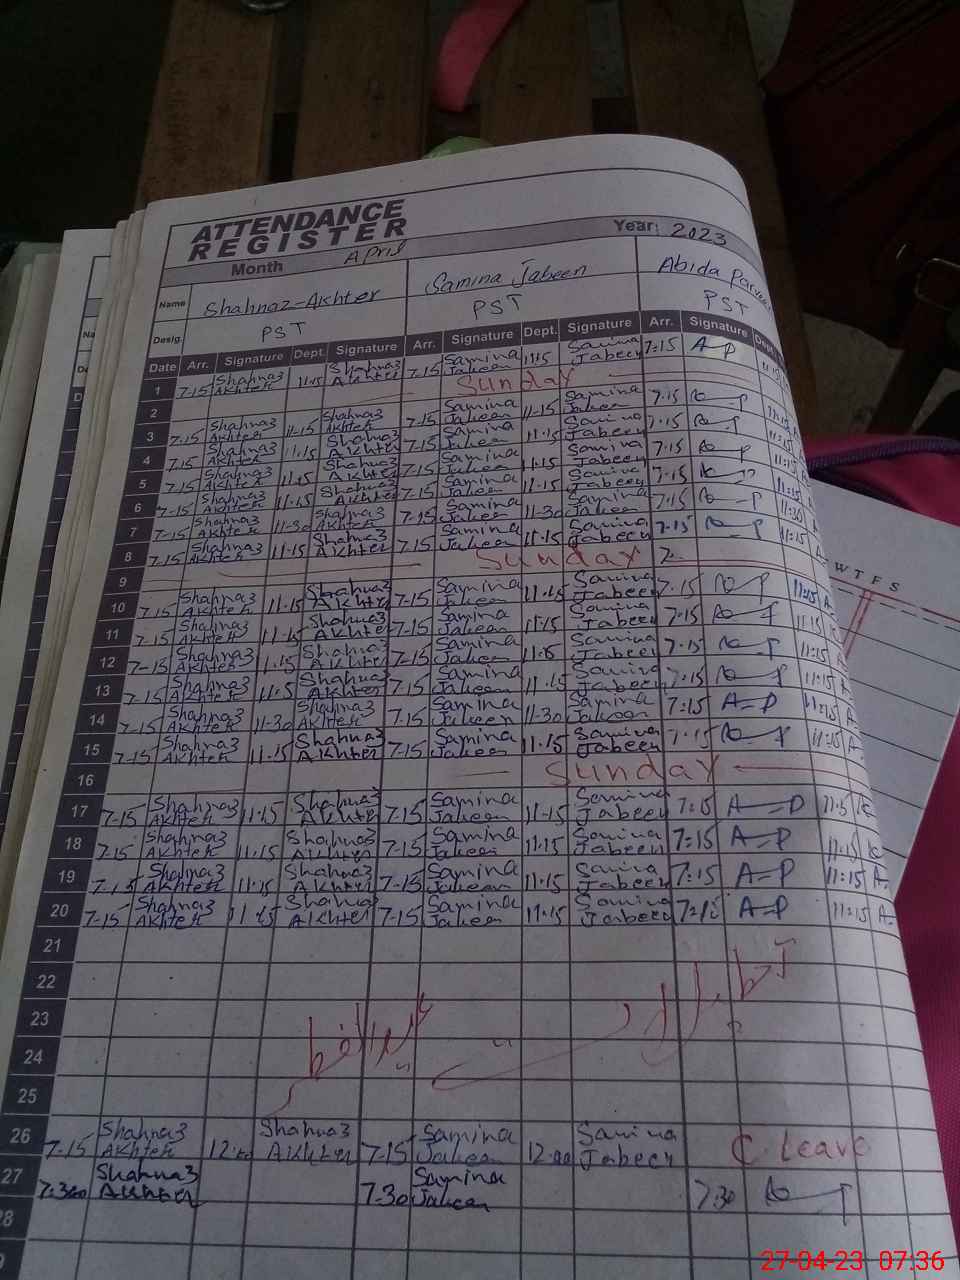 ATTENDANCE
REGISTER
Month April Year: 2023
Name Shahnaz-Akhter Samina Jabeen Abida Parveen
Desig. PST PST PST
Date Arr. Signature Dept. Signature Arr. Signature Dept. Signature Arr. Signature Dept.
1 7-15 Shahnaz Akhter 11-15 Shahnaz Akhter 7.15 Samina Jabeen 11:15 Samina Jabeen 7:15 A-P
2 Sunday
3 7-15 Shahnaz Akhter 11-15 Shahnaz Akhter 7-15 Samina Jabeen 11-15 Samina Jabeen 7.15
4 7-15 Shahnaz Akhter 11.15 Shahnaz Akhter 7-15 Samina Jabeen 11.15 Samina Jabeen 7.15
5 7-15 Shahnaz Akhter 11.15 Shahnaz Akhter 7-15 Samina Jabeen 11.15 Samina Jabeen 7.15
6 7-15 Shahnaz Akhter 11.15 Shahnaz Akhter 7-15 Samina Jabeen 11-15 Samina Jabeen 7.15
7 7-15 Shahnaz Akhter 11-30 Shahnaz Akhter 7-15 Samina Jabeen 11-30 Samina Jabeen 7:15 11:30
8 7-15 Shahnaz Akhter 11-15 Shahnaz Akhter 7.15 Samina Jabeen 11-15 Samina Jabeen 7-15 11:15
9 Sunday
10 7-15 Shahnaz Akhter 11.15 Shahnaz Akhter 7-15 Samina Jabeen 11.15 Samina Jabeen 7.15 11:15
11 7-15 Shahnaz Akhter 11-15 Shahnaz Akhter 7-15 Samina Jabeen 11:15 Samina Jabeen 7:15 11:15
12 7-15 Shahnaz Akhter 11.15 Shahnaz Akhter 7-15 Samina Jabeen 11.15 Samina Jabeen 7.15 11:15
13 7-15 Shahnaz Akhter 11.15 Shahnaz Akhter 7.15 Samina Jabeen 11.15 Samina Jabeen 7:15 11:15
14 7-15 Shahnaz Akhter 11-30 Shahnaz Akhter 7.15 Samina Jabeen 11-30 Samina Jabeen 7:15 A-P 11:15
15 7-15 Shahnaz Akhter 11.15 Shahnaz Akhter 7-15 Samina Jabeen 11.15 Samina Jabeen 7:15 11:15
16 Sunday
17 7-15 Shahnaz Akhter 11.15 Shahnaz Akhter 7-15 Samina Jabeen 11-15 Samina Jabeen 7:15 A-P
18 7-15 Shahnaz Akhter 11.15 Shahnaz Akhter 7-15 Samina Jabeen 11.15 Samina Jabeen 7:15 A-P 11:15
19 7-15 Shahnaz Akhter 11.15 Shahnaz Akhter 7-15 Samina Jabeen 11.15 Samina Jabeen 7:15 A-P 11:15 A
20 7-15 Shahnaz Akhter 11.15 Shahnaz Akhter 7-15 Samina Jabeen 11.15 Samina Jabeen 7:15 A-P 11:15 A
21
22
23
24
25
26 7-15 Shahnaz Akhter 12:00 Shahnaz Akhter 7-15 Samina Jabeen 12:00 Samina Jabeen C. Leave
27 7:30 Shahnaz Akhter 7.30 Samina Jabeen 7:30
28
W T F S
27-04-23 07:36